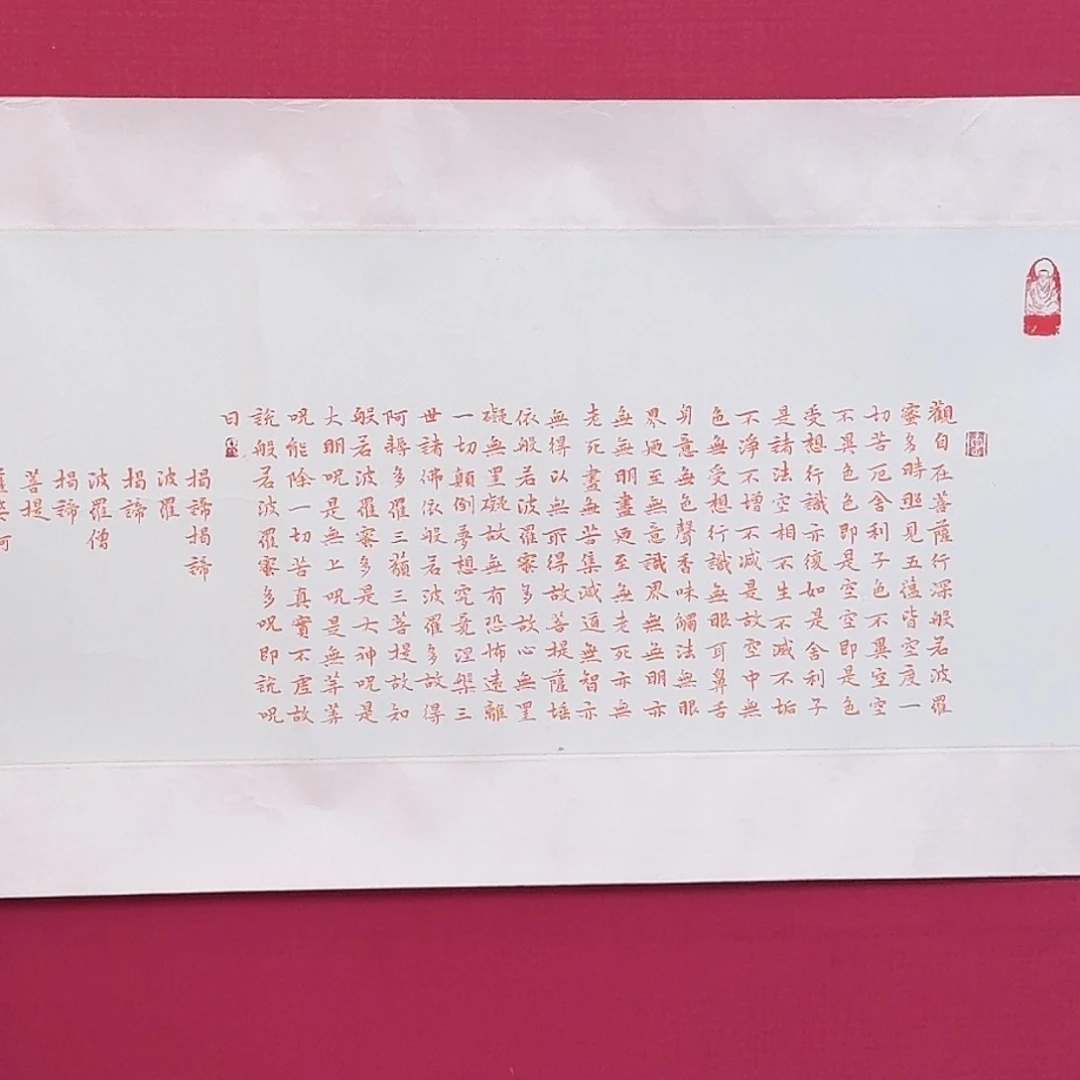 觀自在菩薩行深般若波羅
蜜多時照見五蘊皆空度一
切苦厄舍利子色不異空空
不異色色即是空空即是色
受想行識亦復如是舍利子
是諸法空相不生不滅不垢
不淨不增不減是故空中無
色無受想行識無眼耳鼻舌
身意無色聲香味觸法無眼
界廼至無意識界無無明亦
無無明盡廼至無老死亦無
老死盡無苦集滅道無智亦
無得以無所得故菩提薩埵
依般若波羅蜜多故心無罣
礙無罣礙故無有恐怖遠離
一切顛倒夢想究竟涅槃三
世諸佛依般若波羅多故得
阿耨多羅三藐三菩提故知
般若波羅蜜多是大神呪是
大明呪是無上呪是無等等
呪能除一切苦真實不虛故
說般若波羅蜜多呪即說呪
曰
揭諦揭諦
波羅
揭諦
波羅僧
揭諦
菩提